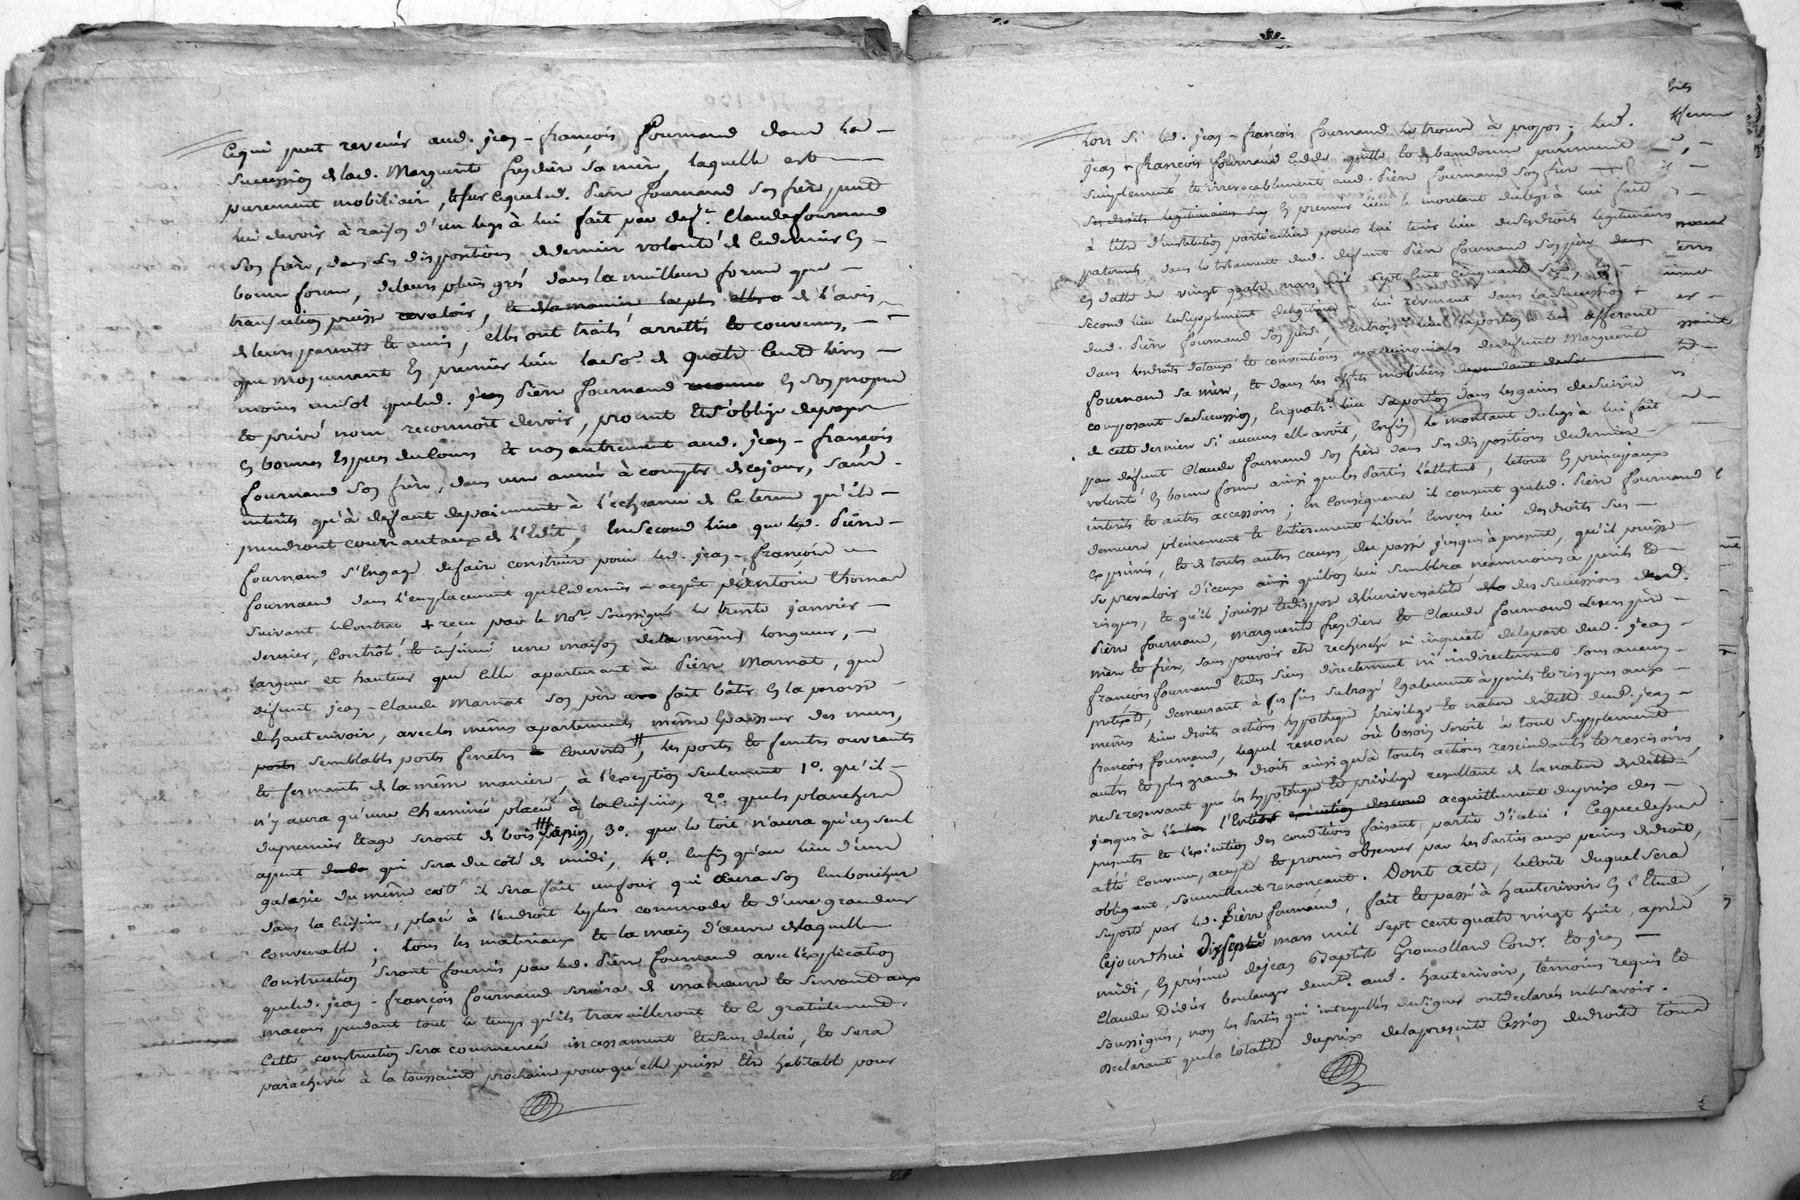 Cequi peut revenir aud. jean-françois fournand dans la
succession de lad. Marguerite freydiere sa mère, laquelle est
purement mobiliair, & sur lequel led. Pierre fournand son frère peut
lui devoir à raison d'un legs à lui fait par def.t Claude fournand
son frère, dans ses dispositions de dernier volonté de ce dernier en
bonne forme, de leurs pleins grés dans la meilleure forme que
transaction puisse valoir, de l'avis
de leurs parents & amis, elles ont traité arrettés & convenus,
que moyennant en premier lieu la so.e de quatre cents livres
moins un sol que led. Pierre fournand en son propre
& privé nom reconnoit devoir, promet & s'oblige de payer
en bonnes espèces du cours & non autrement aud. jean-françois
fournand son frère, dans une année à compter de ce jour, sans
interêts qu'à deffaut de paiement à l'echeance de ce terme qu'ils
prendront cours au taux de l'Edit, En second lieu que led. Pierre
fournand s'engage de faire construire pour led. jean-françois
fournand dans l'emplacement que ce dernier a acquis d'antoine thomas
suivant le contrat reçu par le No.re soussigné le trente janvier
dernier, Controlé & insinué une maison de la même longueur,
largeur et hauteur que celle apartenant à Pierre Marnat, que
défunt jean-Claude Marnat son père fait bâtir en la paroisse
de hauterivoir, avec les mêmes apartements même epaisseur des murs,
semblables ports fenetres couverts, les ports & fenetres ouvrants
& fermants de la même maniere, à l'exception seulement 1°. qu'il
n'y aura qu'une Cheminée placée à la cuisine, 2°. que les planchers
du premier etage seront de bois sapin, 3°. que le toit n'aura qu'un seul
apent qui sera du coté de midi, 4°. enfin qu'au lieu d'une
galerie du même coté il sera fait un four qui aura son embouchure
dans la cuisine, placé à l'endroit le plus commode & d'une grandeur
convenable; tous les materiaux & la main d'œuvre de laquelle
construction seront fournis par led. Pierre fournand avec l'explication
que led. jean-françois fournand servira de manœuvre & servant aux
maçons pendant tout le temps qu'ils travailleront & ce gratuitement.
Cette construction sera commencée incessament & sans delai, & sera
parachevée à la toussaint prochaine pour qu'elle puisse être habitable pour
lors si led. jean-françois fournand le trouve à propos; led.
jean-françois fournand cedde quitte & abandonne purement
simplement & irrevocablement aud. Pierre fournand son frère
en premier lieu le montant du legs à lui fait
à titre d'institution particulière pour lui tenir lieu de ses droits legitimaires
paternels dans le testament dud. défunt Pierre fournand son père
en datte du vingt quatre mars mil sept cent cinquante six,
second lieu le suplement de legitime lui revenant dans la succession
dud. Pierre fournand son père. En trois.e lieu la portion lui afferant
dans les droits dotaux & conventions matrimoniales de defunte Marguerite
fournand sa mère, & dans les effets mobiliers
composant sa succession, En quatr.e lieu sa portion dans les gains de survie
de cette derniere si aucuns elle avoit, Enfin le montant du legs à lui fait
par défunt Claude fournand son frère dans ses dispositions de dernière
volonté en bonne forme ainsi que les Parties l'attestent, le tout en principaux
interêts & autres accessoirs; En consequence il consent que led. Pierre fournand
demeure pleinement & entierement liberé envers lui des droits sus
exprimés, & de touts autres causes du passé jusqu'à present, qu'il puisse
se prevaloir d'iceux ainsi que bon lui semblera néanmoins à perils &
risques, & qu'il jouisse & dispose de l'universalité des successions desd.
Pierre fournand, Marguerite freydiere & Claude fournand Leurs père
mère & frère, sans pouvoir être recherché ni inquieté de la part dud. jean
françois fournand & des siens directement ni indirectement sous aucun
prétexte, demeurant à ces fins subrogé egalement à perils & risques aux
mêmes lieu droits actions hypotheque privilege & nature de dette dud. jean
françois fournand, lequel renonce où besoin seroit à tout supplement
autres & plus grands droits ainsi qu'à touts actions rescindants & rescisoires,
ne se reservant que les hypotheque & privilege resultant de la nature de dette
jusques à l'entier acquittement du prix des
presents & l'execution des conditions faisant partie d'icelui; Ce que dessus
a été convenu, accepté & promis observer par les Parties aux peines de droit,
obligeant, soumettant renonçant. Dont acte, le coût duquel sera
suporté par led. Pierre fournand, fait & passé à hauterivoir en l'Etude,
Cejourd'hui dixsept mars mil sept cent quatre vingt huit, après
midi, En présence de jean Baptiste Gromollard Cord.r & jean
Claude Didier boulanger dem.ts aud. hauterivoir, témoins requis &
soussignés, non les Parties qui interpellées de signer ont declarés ne le savoir.
Declarant que la totalité du prix de la presente Cession de droits tous